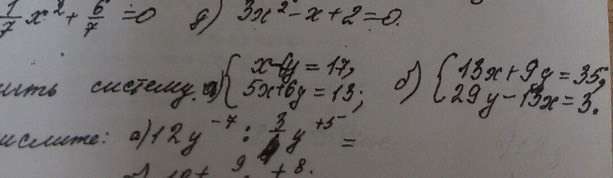 1/7 x² + 6/7 = 0 д) 3x² - x + 2 = 0.
ить систему. а) { x - 6y = 17, 5x + 6y = 13; б) { 13x + 9y = 35, 29y - 13x = 3.
ислите: а) 12y⁻⁷ : y⁺⁵ =